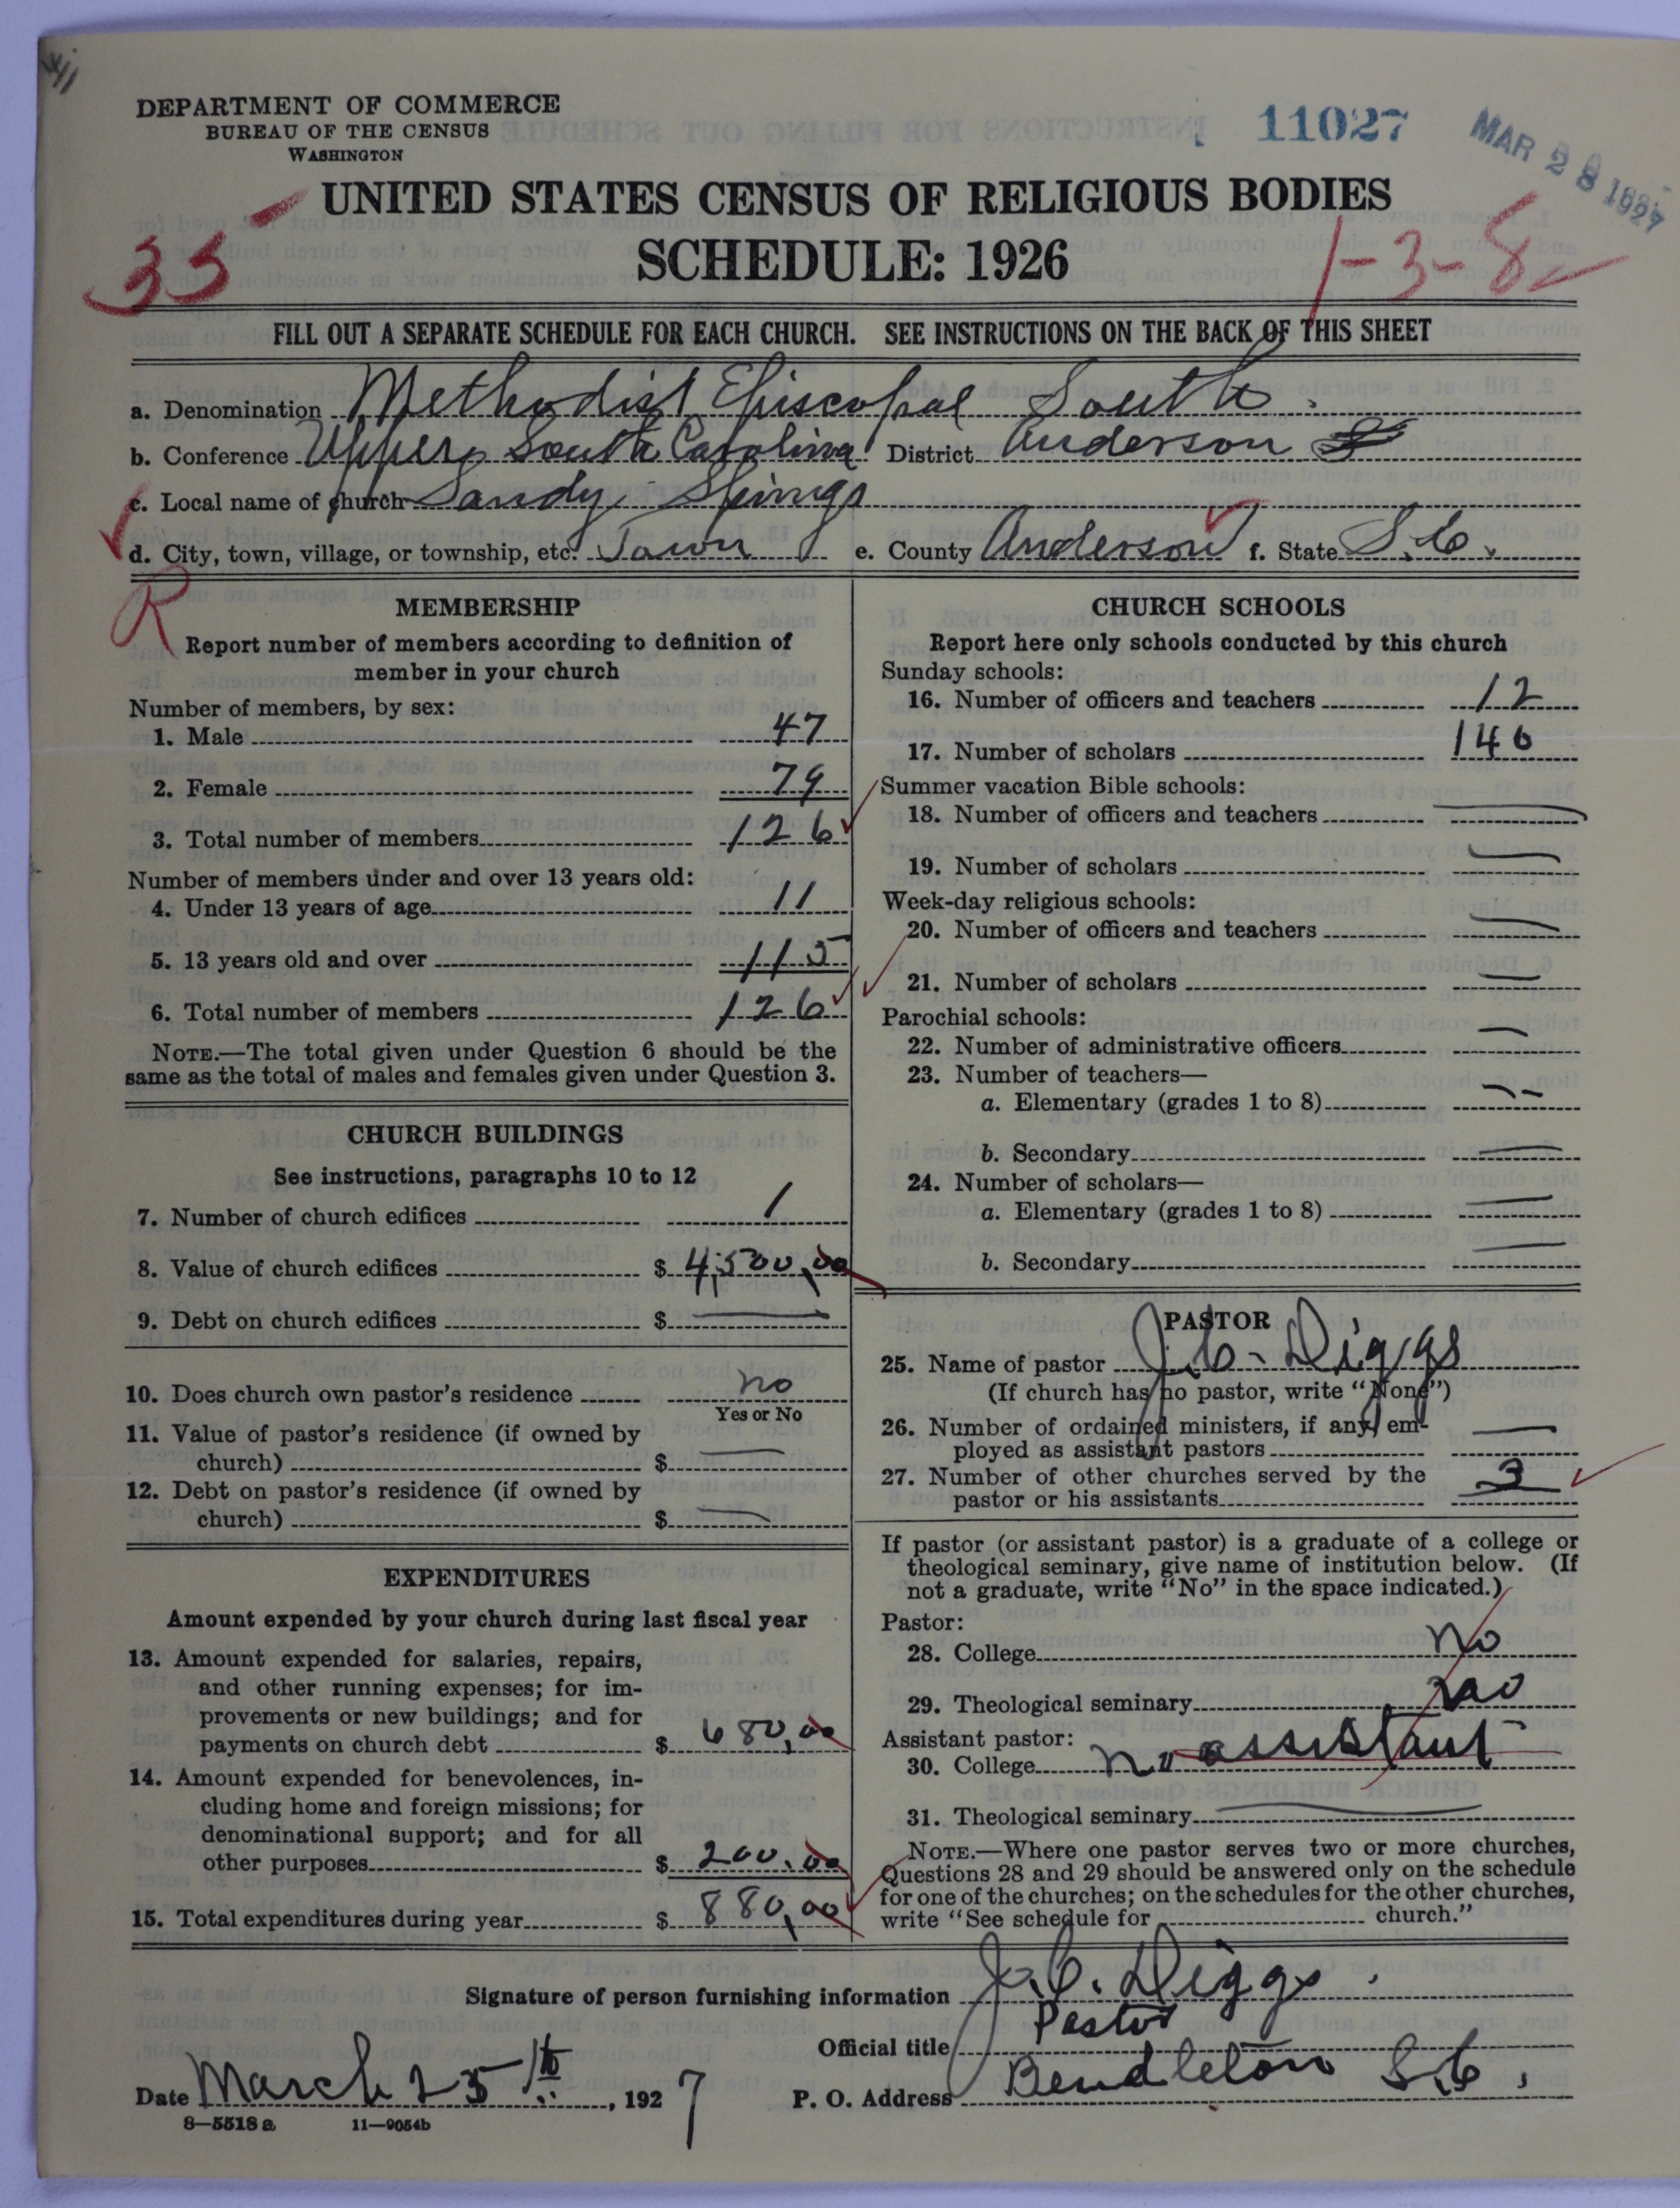 DEPARTMENT OF COMMERCE
BUREAU OF THE CENSUS
WASHINGTON
11027
MAR 28 1927
UNITED STATES CENSUS OF RELIGIOUS BODIES
SCHEDULE: 1926
35
1-3-8
FILL OUT A SEPARATE SCHEDULE FOR EACH CHURCH. SEE INSTRUCTIONS ON THE BACK OF THIS SHEET
a. Denomination Methodist Episcopal South.
b. Conference Upper South Carolina District Anderson
c. Local name of church Sandy Springs
d. City, town, village, or township, etc. Town e. County Anderson f. State S.C.
R
MEMBERSHIP
Report number of members according to definition of
member in your church
Number of members, by sex:
1. Male 47
2. Female 79
3. Total number of members 126
Number of members under and over 13 years old:
4. Under 13 years of age 11
5. 13 years old and over 115
6. Total number of members 126
NOTE.—The total given under Question 6 should be the
same as the total of males and females given under Question 3.
CHURCH BUILDINGS
See instructions, paragraphs 10 to 12
7. Number of church edifices 1
8. Value of church edifices $ 4,500,00
9. Debt on church edifices $ —
10. Does church own pastor's residence no
Yes or No
11. Value of pastor's residence (if owned by
church) $ —
12. Debt on pastor's residence (if owned by
church) $ —
EXPENDITURES
Amount expended by your church during last fiscal year
13. Amount expended for salaries, repairs,
and other running expenses; for im-
provements or new buildings; and for
payments on church debt $ 680,00
14. Amount expended for benevolences, in-
cluding home and foreign missions; for
denominational support; and for all
other purposes $ 200.00
15. Total expenditures during year $ 880,00
CHURCH SCHOOLS
Report here only schools conducted by this church
Sunday schools:
16. Number of officers and teachers 12
17. Number of scholars 140
Summer vacation Bible schools:
18. Number of officers and teachers —
19. Number of scholars —
Week-day religious schools:
20. Number of officers and teachers —
21. Number of scholars —
Parochial schools:
22. Number of administrative officers —
23. Number of teachers—
a. Elementary (grades 1 to 8) --
b. Secondary —
24. Number of scholars—
a. Elementary (grades 1 to 8) —
b. Secondary —
PASTOR
25. Name of pastor J.C. Diggs
(If church has no pastor, write "None")
26. Number of ordained ministers, if any, em-
ployed as assistant pastors —
27. Number of other churches served by the
pastor or his assistants 3
If pastor (or assistant pastor) is a graduate of a college or
theological seminary, give name of institution below. (If
not a graduate, write "No" in the space indicated.)
Pastor:
28. College no
29. Theological seminary no
Assistant pastor:
30. College no assistant
31. Theological seminary —
NOTE.—Where one pastor serves two or more churches,
Questions 28 and 29 should be answered only on the schedule
for one of the churches; on the schedules for the other churches,
write "See schedule for church."
Signature of person furnishing information J.C. Diggs.
Official title Pastor
Date March 25th, 1927 P. O. Address Pendleton S.C.,
8—5518 a 11—9054b